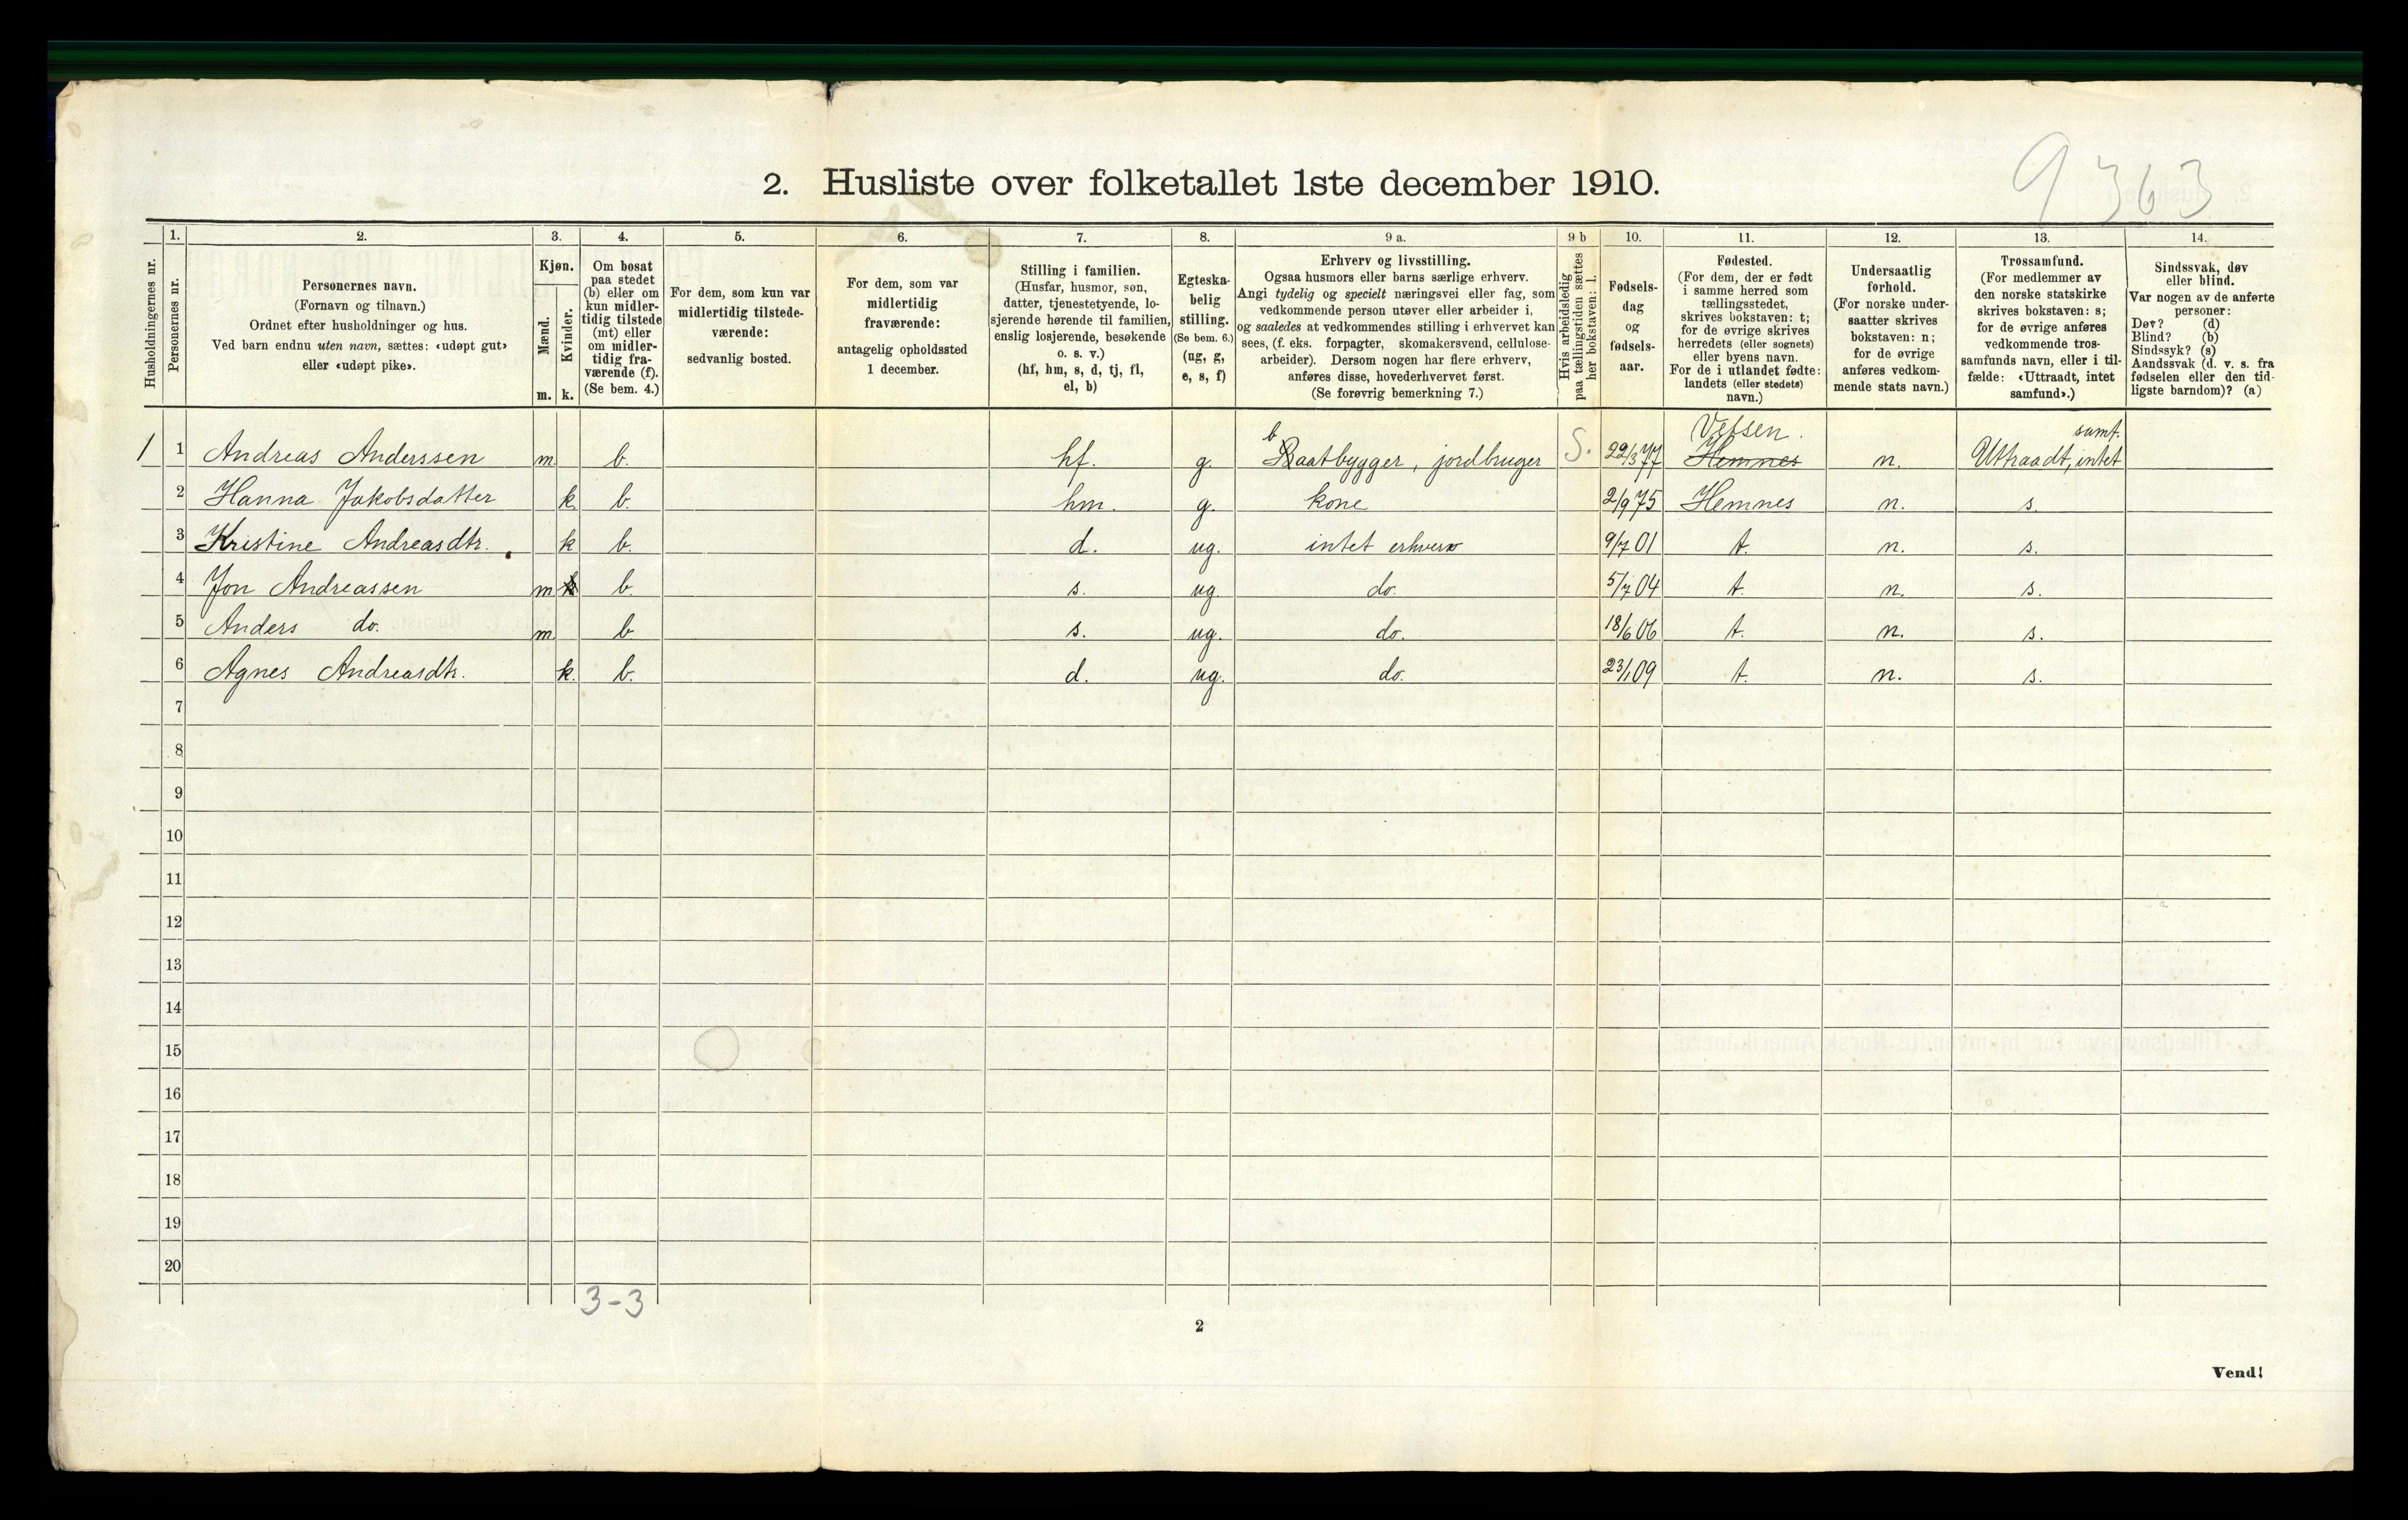 9363
2. Husliste over folketallet 1ste december 1910.
1. 2. 3. 4. 5. 6. 7. 8. 9 a. 9 b 10. 11. 12. 13. 14.
Husholdningernes nr.
Personernes nr.
Personernes navn.
(Fornavn og tilnavn.)
Ordnet efter husholdninger og hus.
Ved barn endnu uten navn, sættes: «udøpt gut»
eller «udøpt pike».
Kjøn.
Mænd.
Kvinder.
m. k.
Om bosat
paa stedet
(b) eller om
kun midler-
tidig tilstede
(mt) eller
om midler-
tidig fra-
værende (f).
(Se bem. 4.)
For dem, som kun var
midlertidig tilstede-
værende:
sedvanlig bosted.
For dem, som var
midlertidig
fraværende:
antagelig opholdssted
1 december.
Stilling i familien.
(Husfar, husmor, søn,
datter, tjenestetyende, lo-
sjerende hørende til familien,
enslig losjerende, besøkende
o. s. v.)
(hf, hm, s, d, tj, fl,
el, b)
Egteska-
belig
stilling.
(Se bem. 6.)
(ug, g,
e, s, f)
Erhverv og livsstilling.
Ogsaa husmors eller barns særlige erhverv.
Angi tydelig og specielt næringsvei eller fag, som
vedkommende person utøver eller arbeider i,
og saaledes at vedkommendes stilling i erhvervet kan
sees, (f. eks. forpagter, skomakersvend, cellulose-
arbeider). Dersom nogen har flere erhverv,
anføres disse, hovederhvervet først.
(Se forøvrig bemerkning 7.)
Hvis arbeidsledig
paa tællingstiden sættes
her bokstaven: l.
Fødsels-
dag
og
fødsels-
aar.
Fødested.
(For dem, der er født
i samme herred som
tællingsstedet,
skrives bokstaven: t;
for de øvrige skrives
herredets (eller sognets)
eller byens navn.
For de i utlandet fødte:
landets (eller stedets)
navn.)
Undersaatlig
forhold.
(For norske under-
saatter skrives
bokstaven: n;
for de øvrige
anføres vedkom-
mende stats navn.)
Trossamfund.
(For medlemmer av
den norske statskirke
skrives bokstaven: s;
for de øvrige anføres
vedkommende tros-
samfunds navn, eller i til-
fælde: «Uttraadt, intet
samfund».)
Sindssvak, døv
eller blind.
Var nogen av de anførte
personer:
Døv? (d)
Blind? (b)
Sindssyk? (s)
Aandssvak (d. v. s. fra
fødselen eller den tid-
ligste barndom)? (a)
b Vefsen. samf.
1 1 Andreas Anderssen m. b. hf. g. Baatbygger, jordbruger S. 22/3 77 Hemnes n. Uttraadt, intet
2 Hanna Jakobsdatter k. b. hm. g. kone 2/9 75 Hemnes n. s.
3 Kristine Andreasdtr. k b. d. ug. intet erhverv 9/7 01 t. n. s.
4 Jon Andreassen m k b. s. ug. do. 5/7 04 t. n. s.
5 Anders do. m b s. ug. do. 18/6 06 t. n. s.
6 Agnes Andreasdtr. k. b. d. ug. do. 23/1 09 t. n. s.
7
8
9
10
11
12
13
14
15
16
17
18
19
20
3-3
2
Vend!